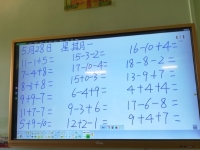 5月28日 星期一
11-1+5=
7-4+8=
8-9+8=
9+9-7=
11+7-7=
5+9-10=
15-3-2=
17-10-4=
15+0-3=
6-4+9=
9-3+6=
12+2-1=
16-10+4=
18-8-2=
13-9+7=
4+4+4=
17-6-8=
9+4+7=